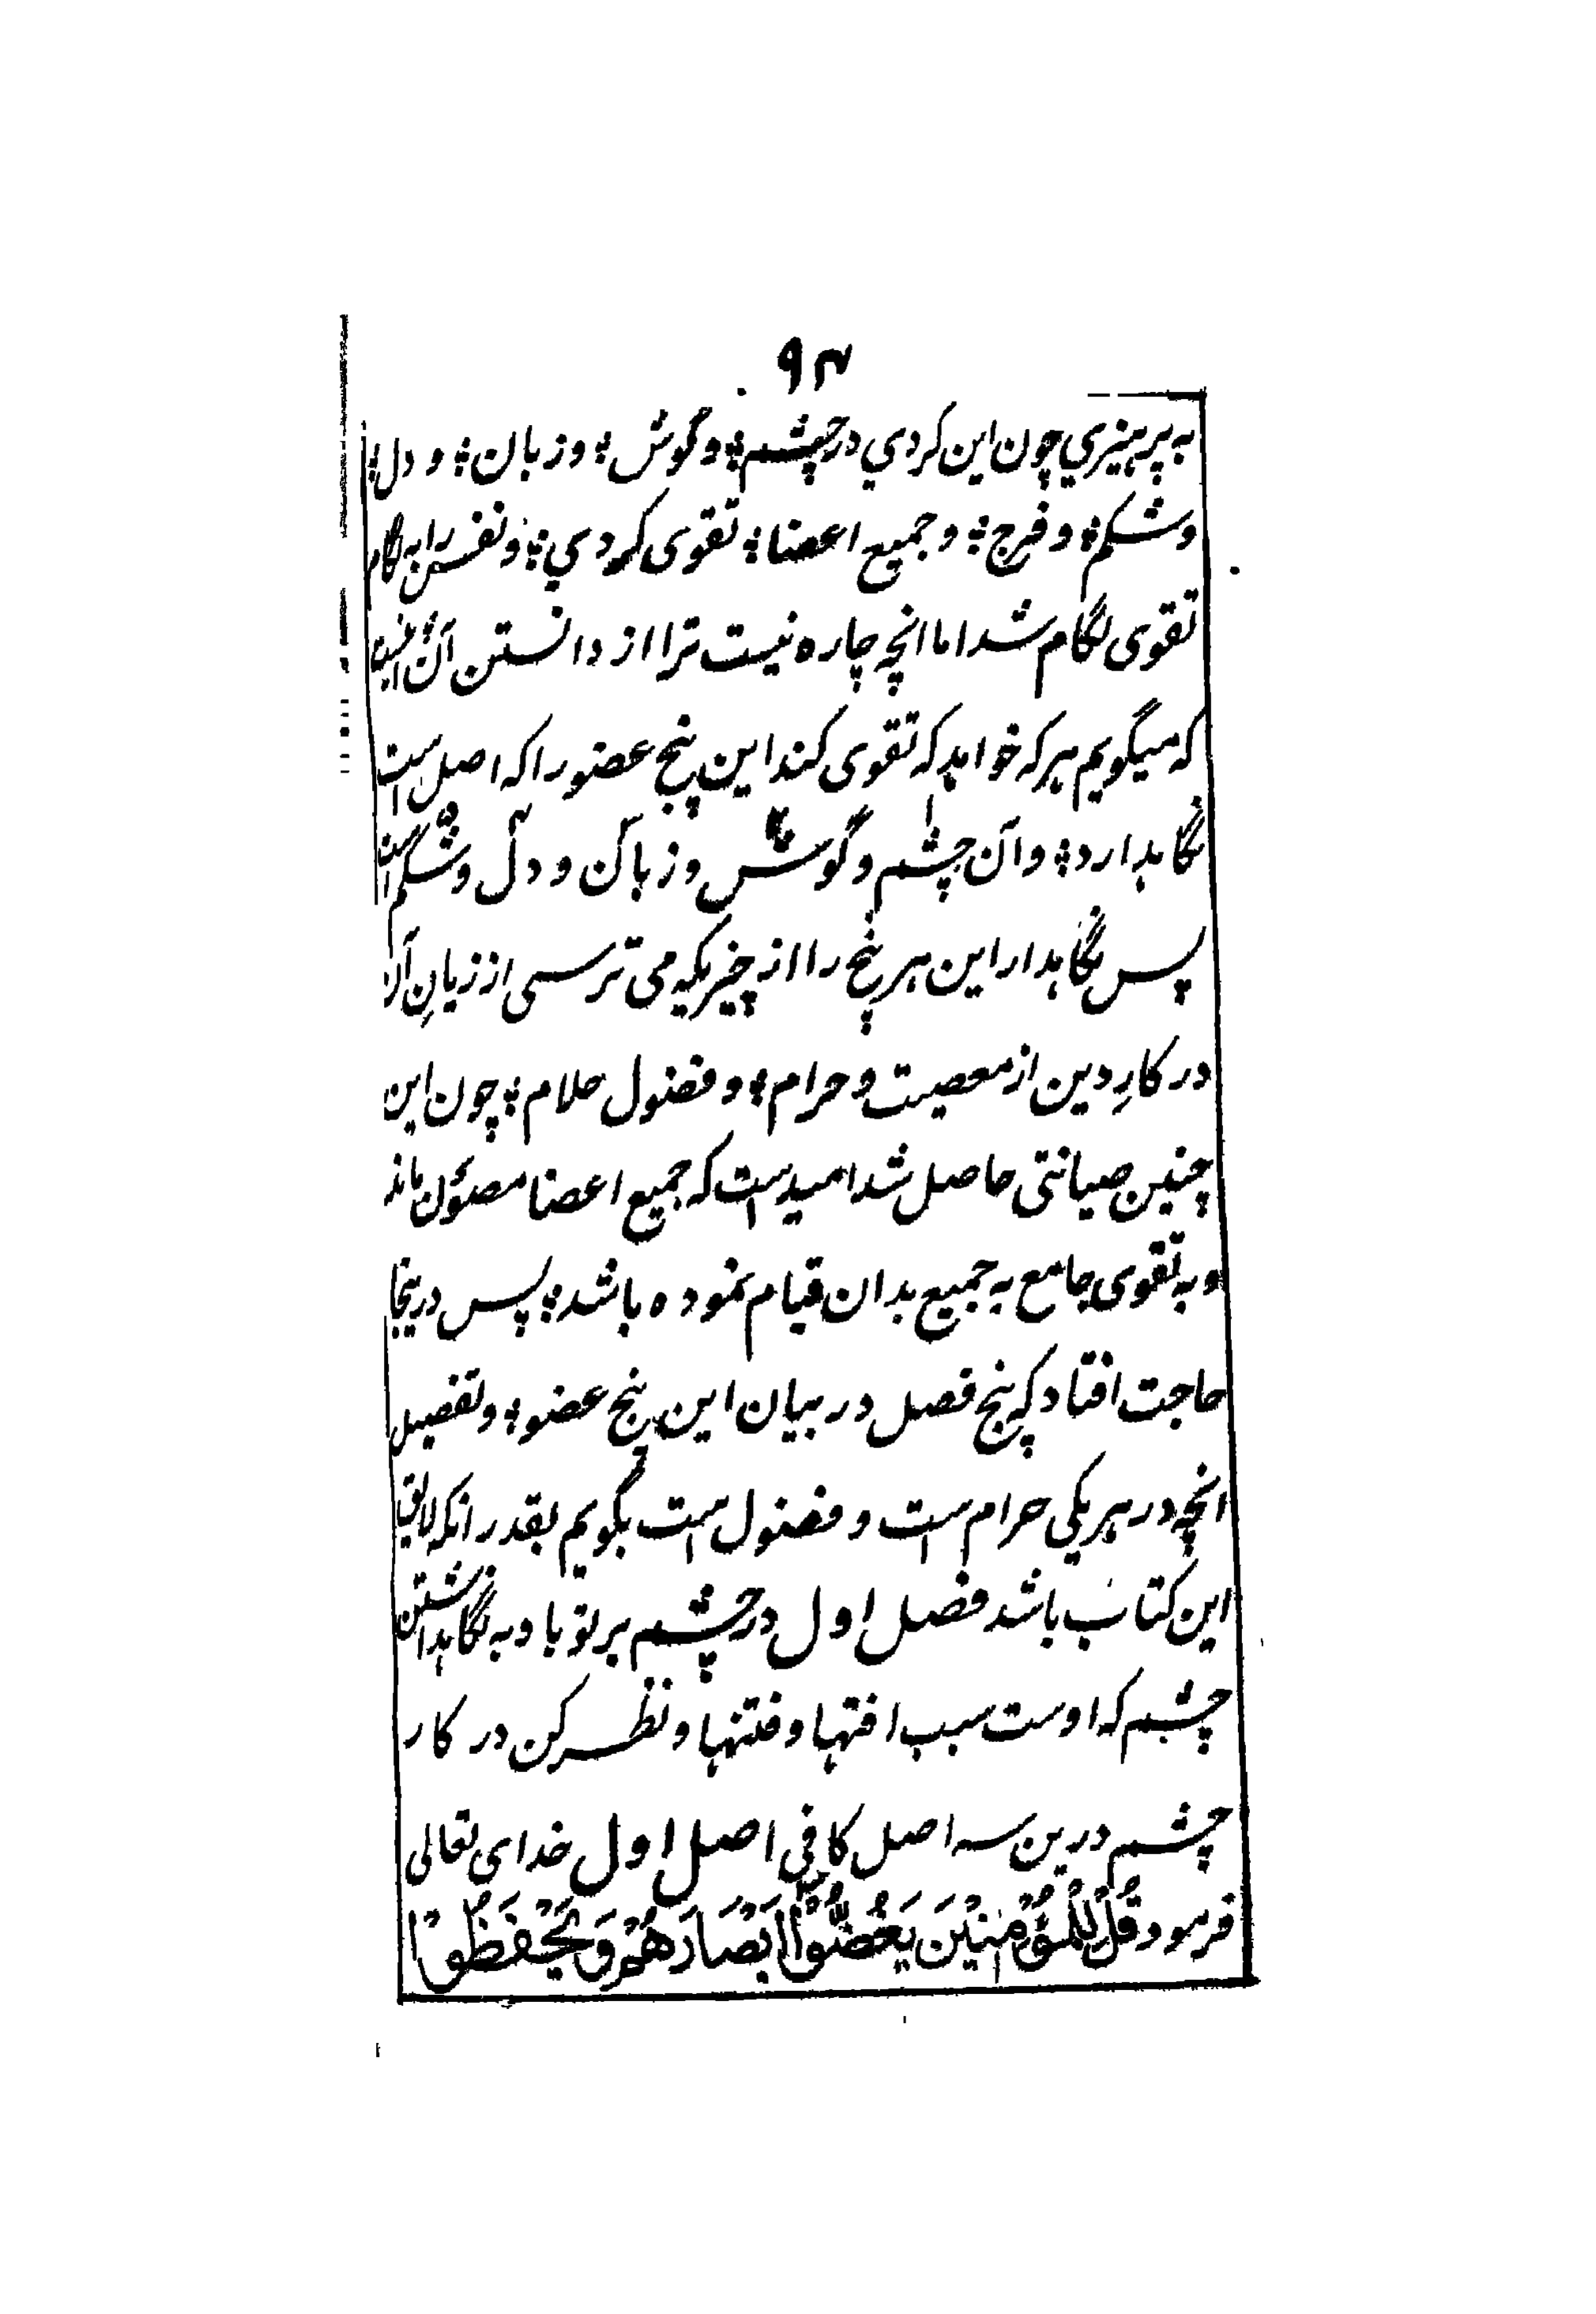 ۹۴
به پرهیزي چون این کردي در چشم؛ و گوش؛ و زبان؛ و دل؛
و شکم؛ و فرج؛ و جمیع اعضا؛ تقوی کردي؛ و نفس را به لگام
تقوی لگام شد اما انچه چاره نیست ترا از دانستن آن
که میگویم هر که خواهد که تقوی کند این پنج عضو را که اصل است
نگاهدارد؛ و آن چشم و گوش و زبان و دل و شکم است
پس نگاهدار این هر پنج را از چیزیکه می ترسی از زیانِ آن
در کارِ دین از معصیت و حرام؛ و فضول حلام؛ چون این
چنین صیانتی حاصل شد امید است که جمیع اعضا مصئون ماند
و به تقوی جامع به جمیع بدان قیام نموده باشد؛ پس درینجا
حاجت افتاد که پنج فصل در بیان این پنج عضو؛ و تفصیل
انچه در هر یکی حرام است و فضول است بگویم بقدر انکه لایق
این کتاب باشد فصل اول در چشم بر تو با دبه نگاهداشتن
چشم که اوست سبب افتها و فتنها و نظر کن در کار
چشم درین سه اصل کافی اصل اول خدای تعالی
فرمود قُلْ لِلْمُؤْمِنِیْنَ یَغُضُّوْا اَبْصَارَهُمْ وَیَحْفَظُوْا